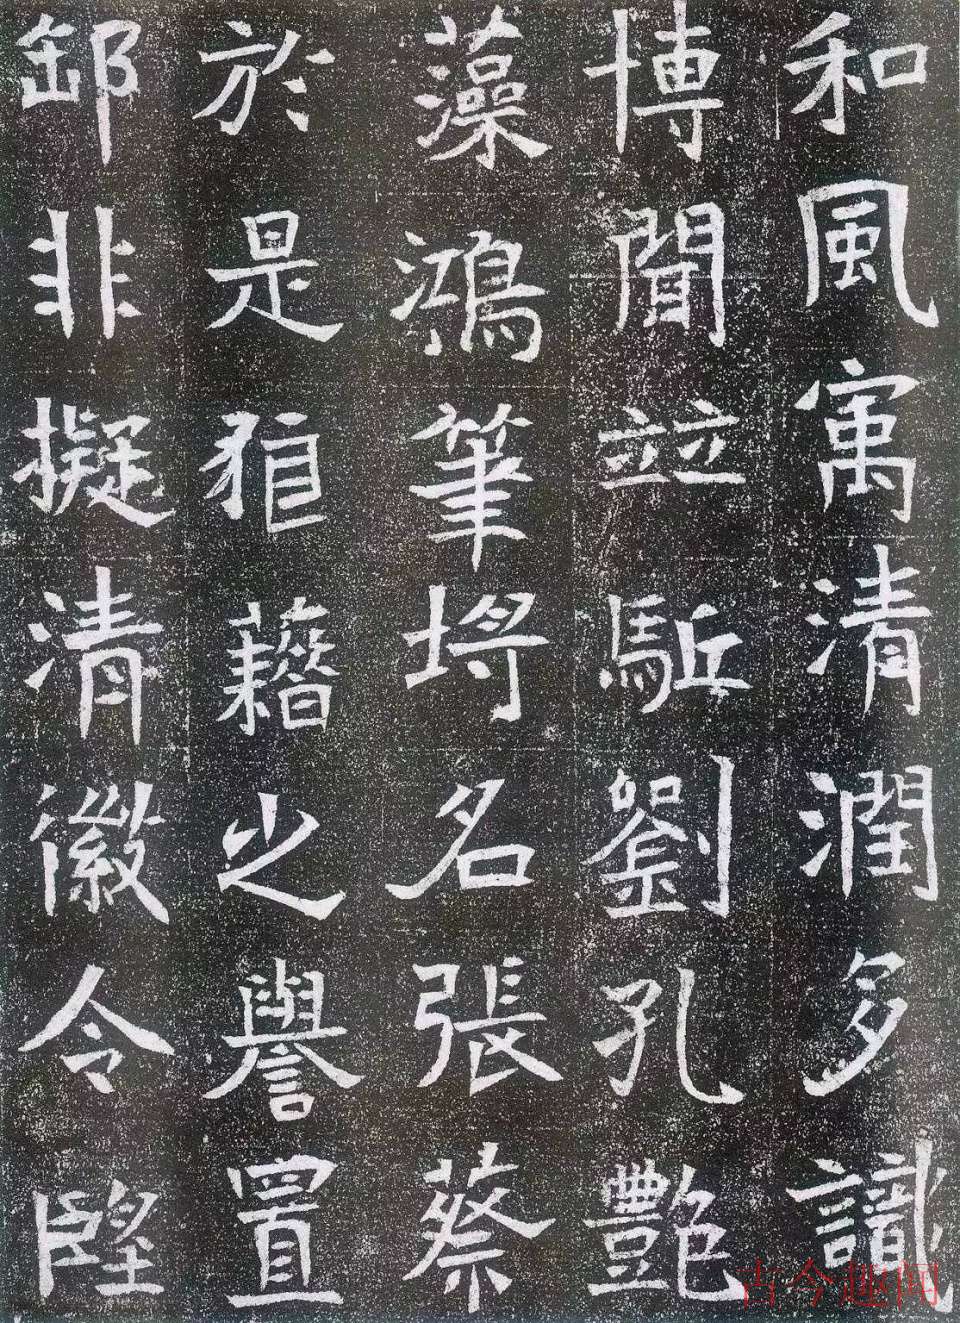 和風寓清潤多識
博聞竝駈劉孔艷
藻鴻筆埒名張蔡
於是藉之譽置
郵非擬清徽令
古今趣闻